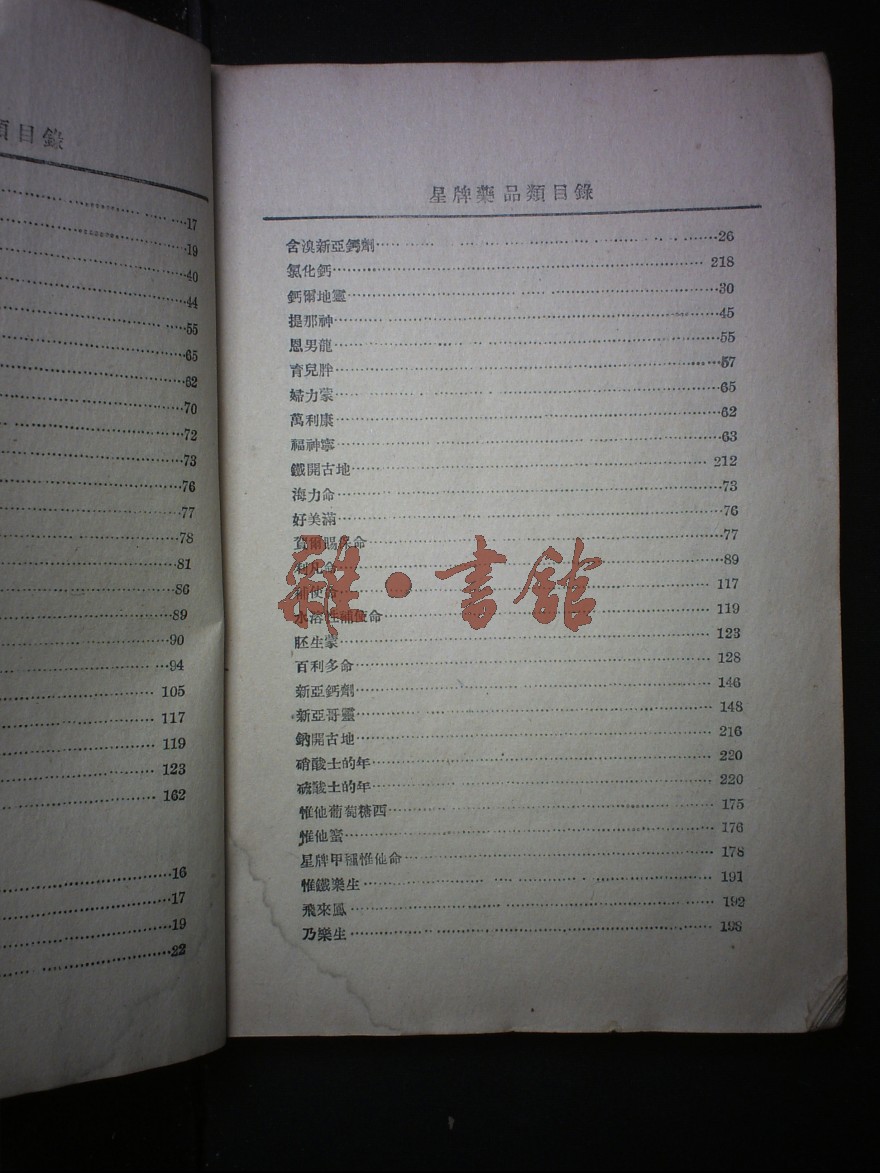 類目錄
17
19
40
44
55
65
62
70
72
73
76
77
78
81
86
89
90
94
105
117
119
123
162
16
17
19
22
星牌藥品類目錄
含溴新亞鈣劑 26
氯化鈣 218
鈣爾地靈 30
提那神 45
恩男龍 55
育兒胖 57
婦力蒙 65
萬利康 62
福神寧 63
鐵開古地 212
海力命 73
好美滿 76
賀爾賜保命 77
利凡命 89
補使命 117
水溶性補使命 119
胚生蒙 123
百利多命 128
新亞鈣劑 146
新亞哥靈 148
鈉開古地 216
硝酸士的年 220
硫酸士的年 220
惟他葡萄糖西 175
惟他蜜 176
星牌甲種惟他命 178
惟鐵樂生 191
飛來鳳 192
乃樂生 198
雜·書館